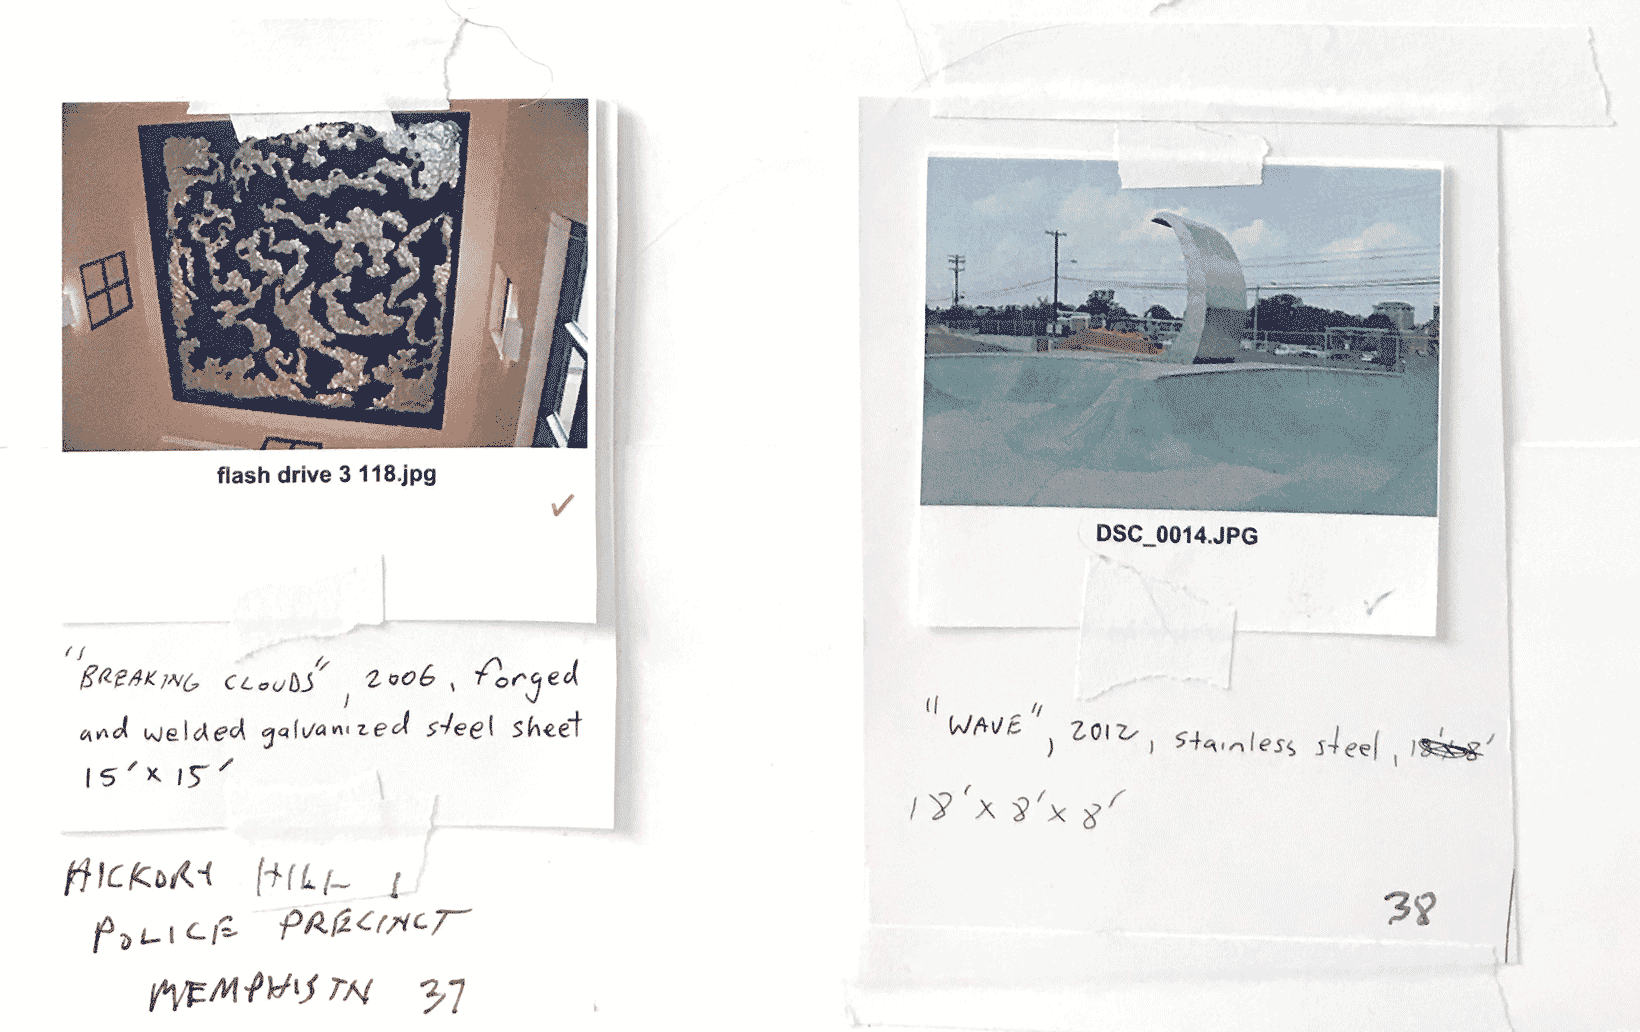 flash drive 3 118.jpg
"BREAKING CLOUDS", 2006, forged
and welded galvanized steel sheet
15' x 15'
HICKORY HILL,
POLICE PRECINCT
MEMPHIS TN 37
DSC_0014.JPG
"WAVE", 2012, stainless steel,
18' x 8' x 8'
38